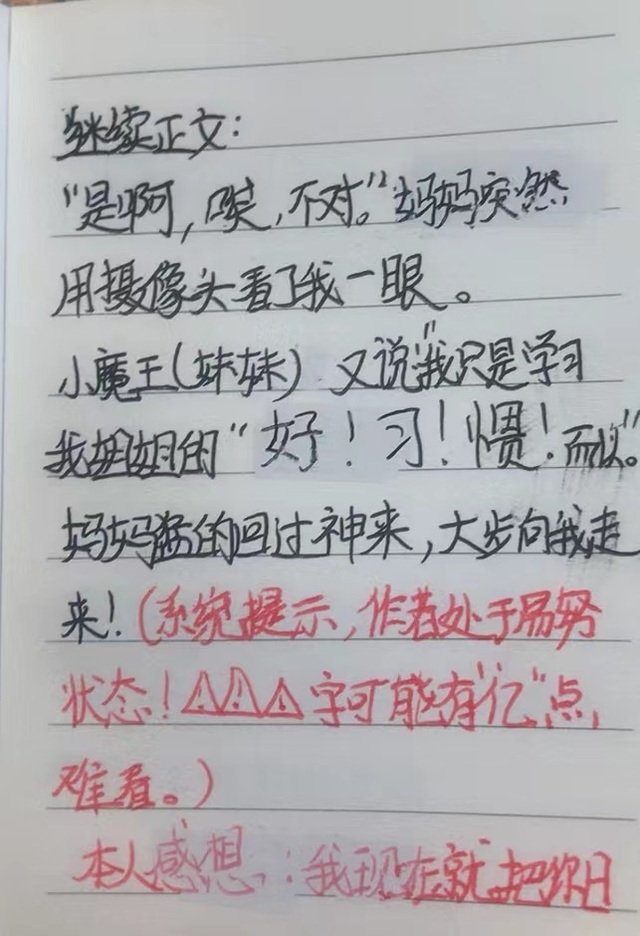 继续正文：
“是啊，唉，不对。”妈妈突然
用摄像头看了我一眼。
小魔王（妹妹）又说“我只是学习
我姐姐的“好！习！惯！而以”。
妈妈猛的回过神来，大步向我走
来！（系统提示，作者处于易努
状态！⚠⚠⚠字可能有“亿”点，
难看。）
本人感想：我现在就把你日